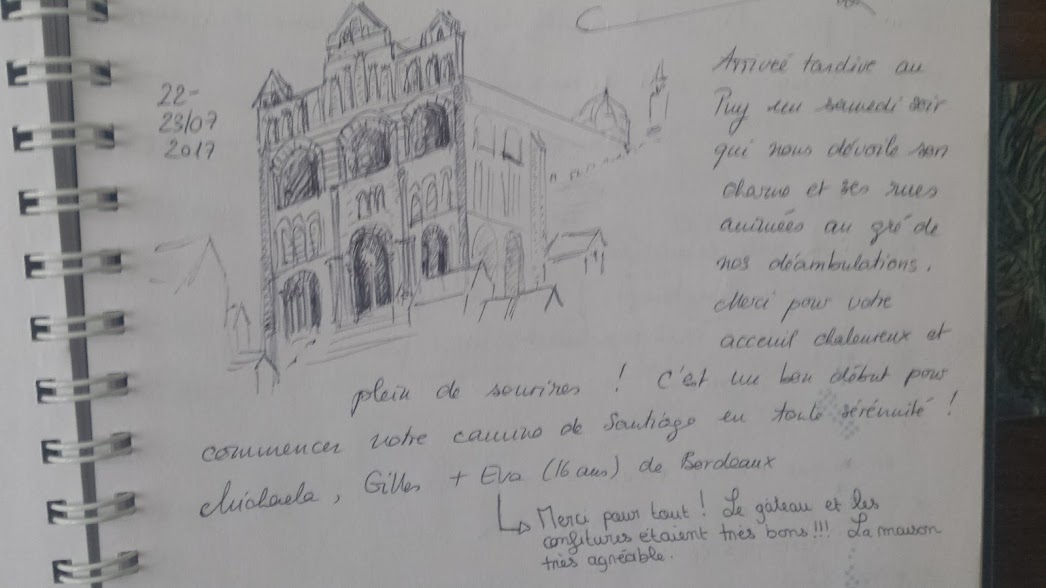 22-
23/07
2017
Arriveé tardive au
Puy un samedi soir
qui nous dévoile son
charme et ses rues
animées au gré de
nos déambulations.
Merci pour votre
acceuil chaleureux et
plein de sourires ! C'est un bon début pour
commencer notre camino de Santiago en toute sérénnité !
Michaela, Gilles + Eva (16 ans) de Bordeaux
Merci pour tout ! Le gâteau et les
confitures étaient très bons!!! La maison
très agréable.